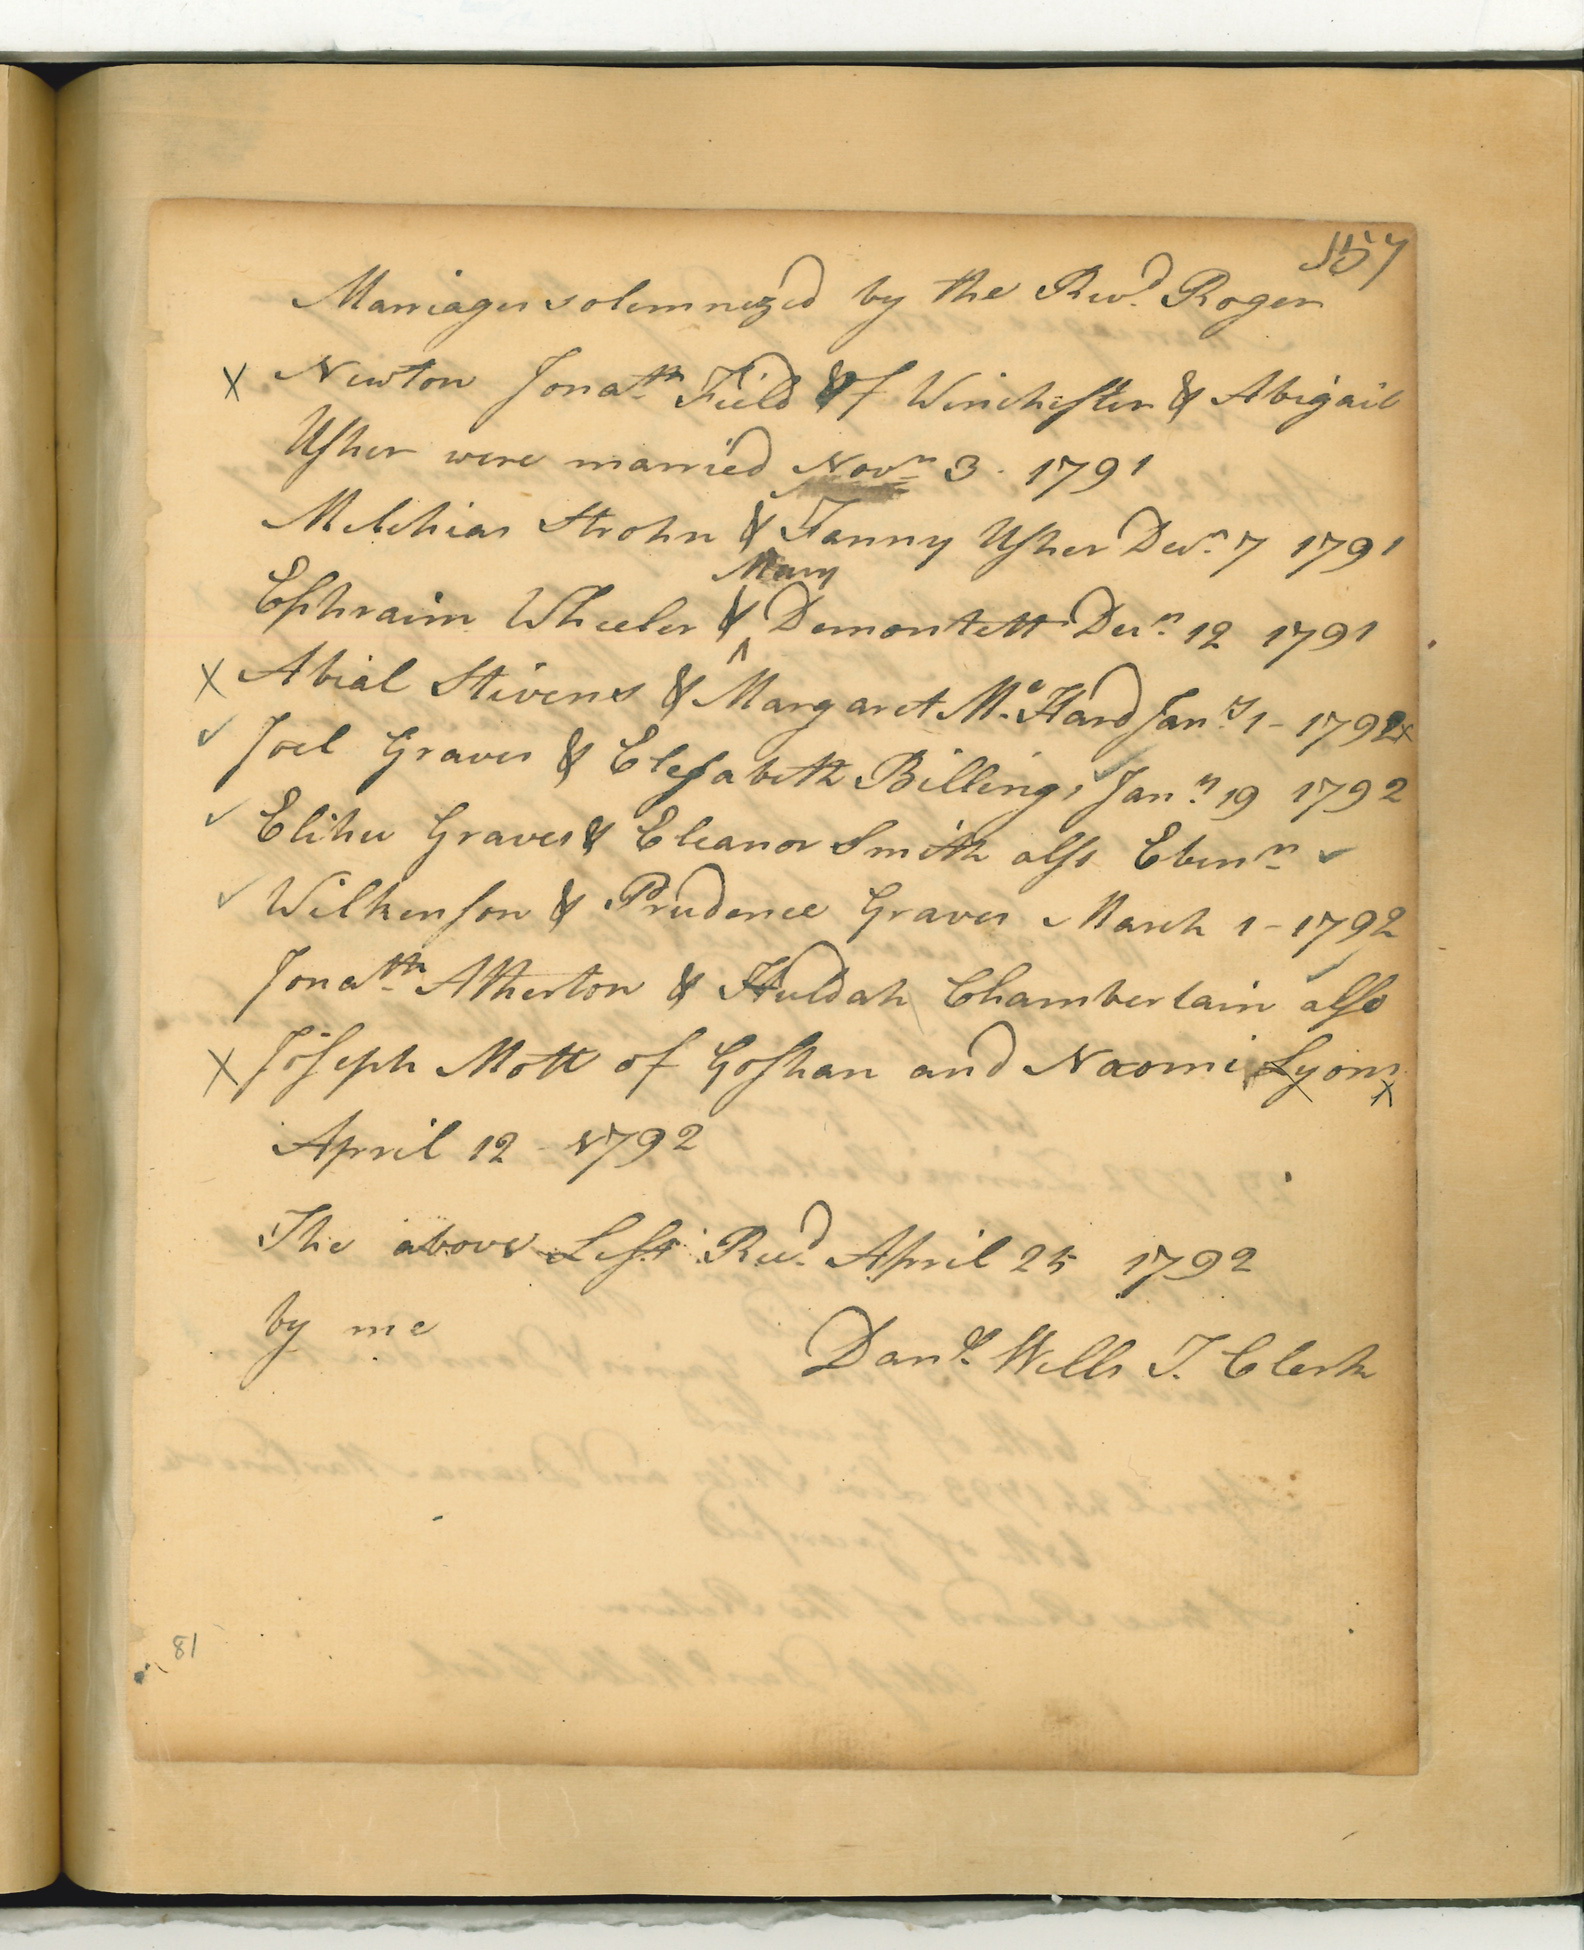 157
Marriages solemnezed by the Revd. Roger
X Newton Jonath. Field of Winchester & Abigail
Usher were married Novr. 3. 1791
Melchias Strohn & Fanny Usher Decr. 7 1791
Mary
Ephraim Wheeler & ^ Demontett Decr. 12 1791
X Abial Stivens & Margaret Mc. Hard Jany. 1 - 1792 x
✓ Joel Graves & Elesabeth Billings ✓ Jany. 19 1792
✓ Elihu Graves & Eleanor Smith also Ebenr. ✓
✓ Wilkenson & Prudence Graves March 1 - 1792
Jonath. Atherton & Huldah Chamberlain also
X Joseph Mott of Goshan and Naomi Lyons x
April 12 1792
The above List Recd. April 25 1792
by me
Danll. Wells T. Clerk
81